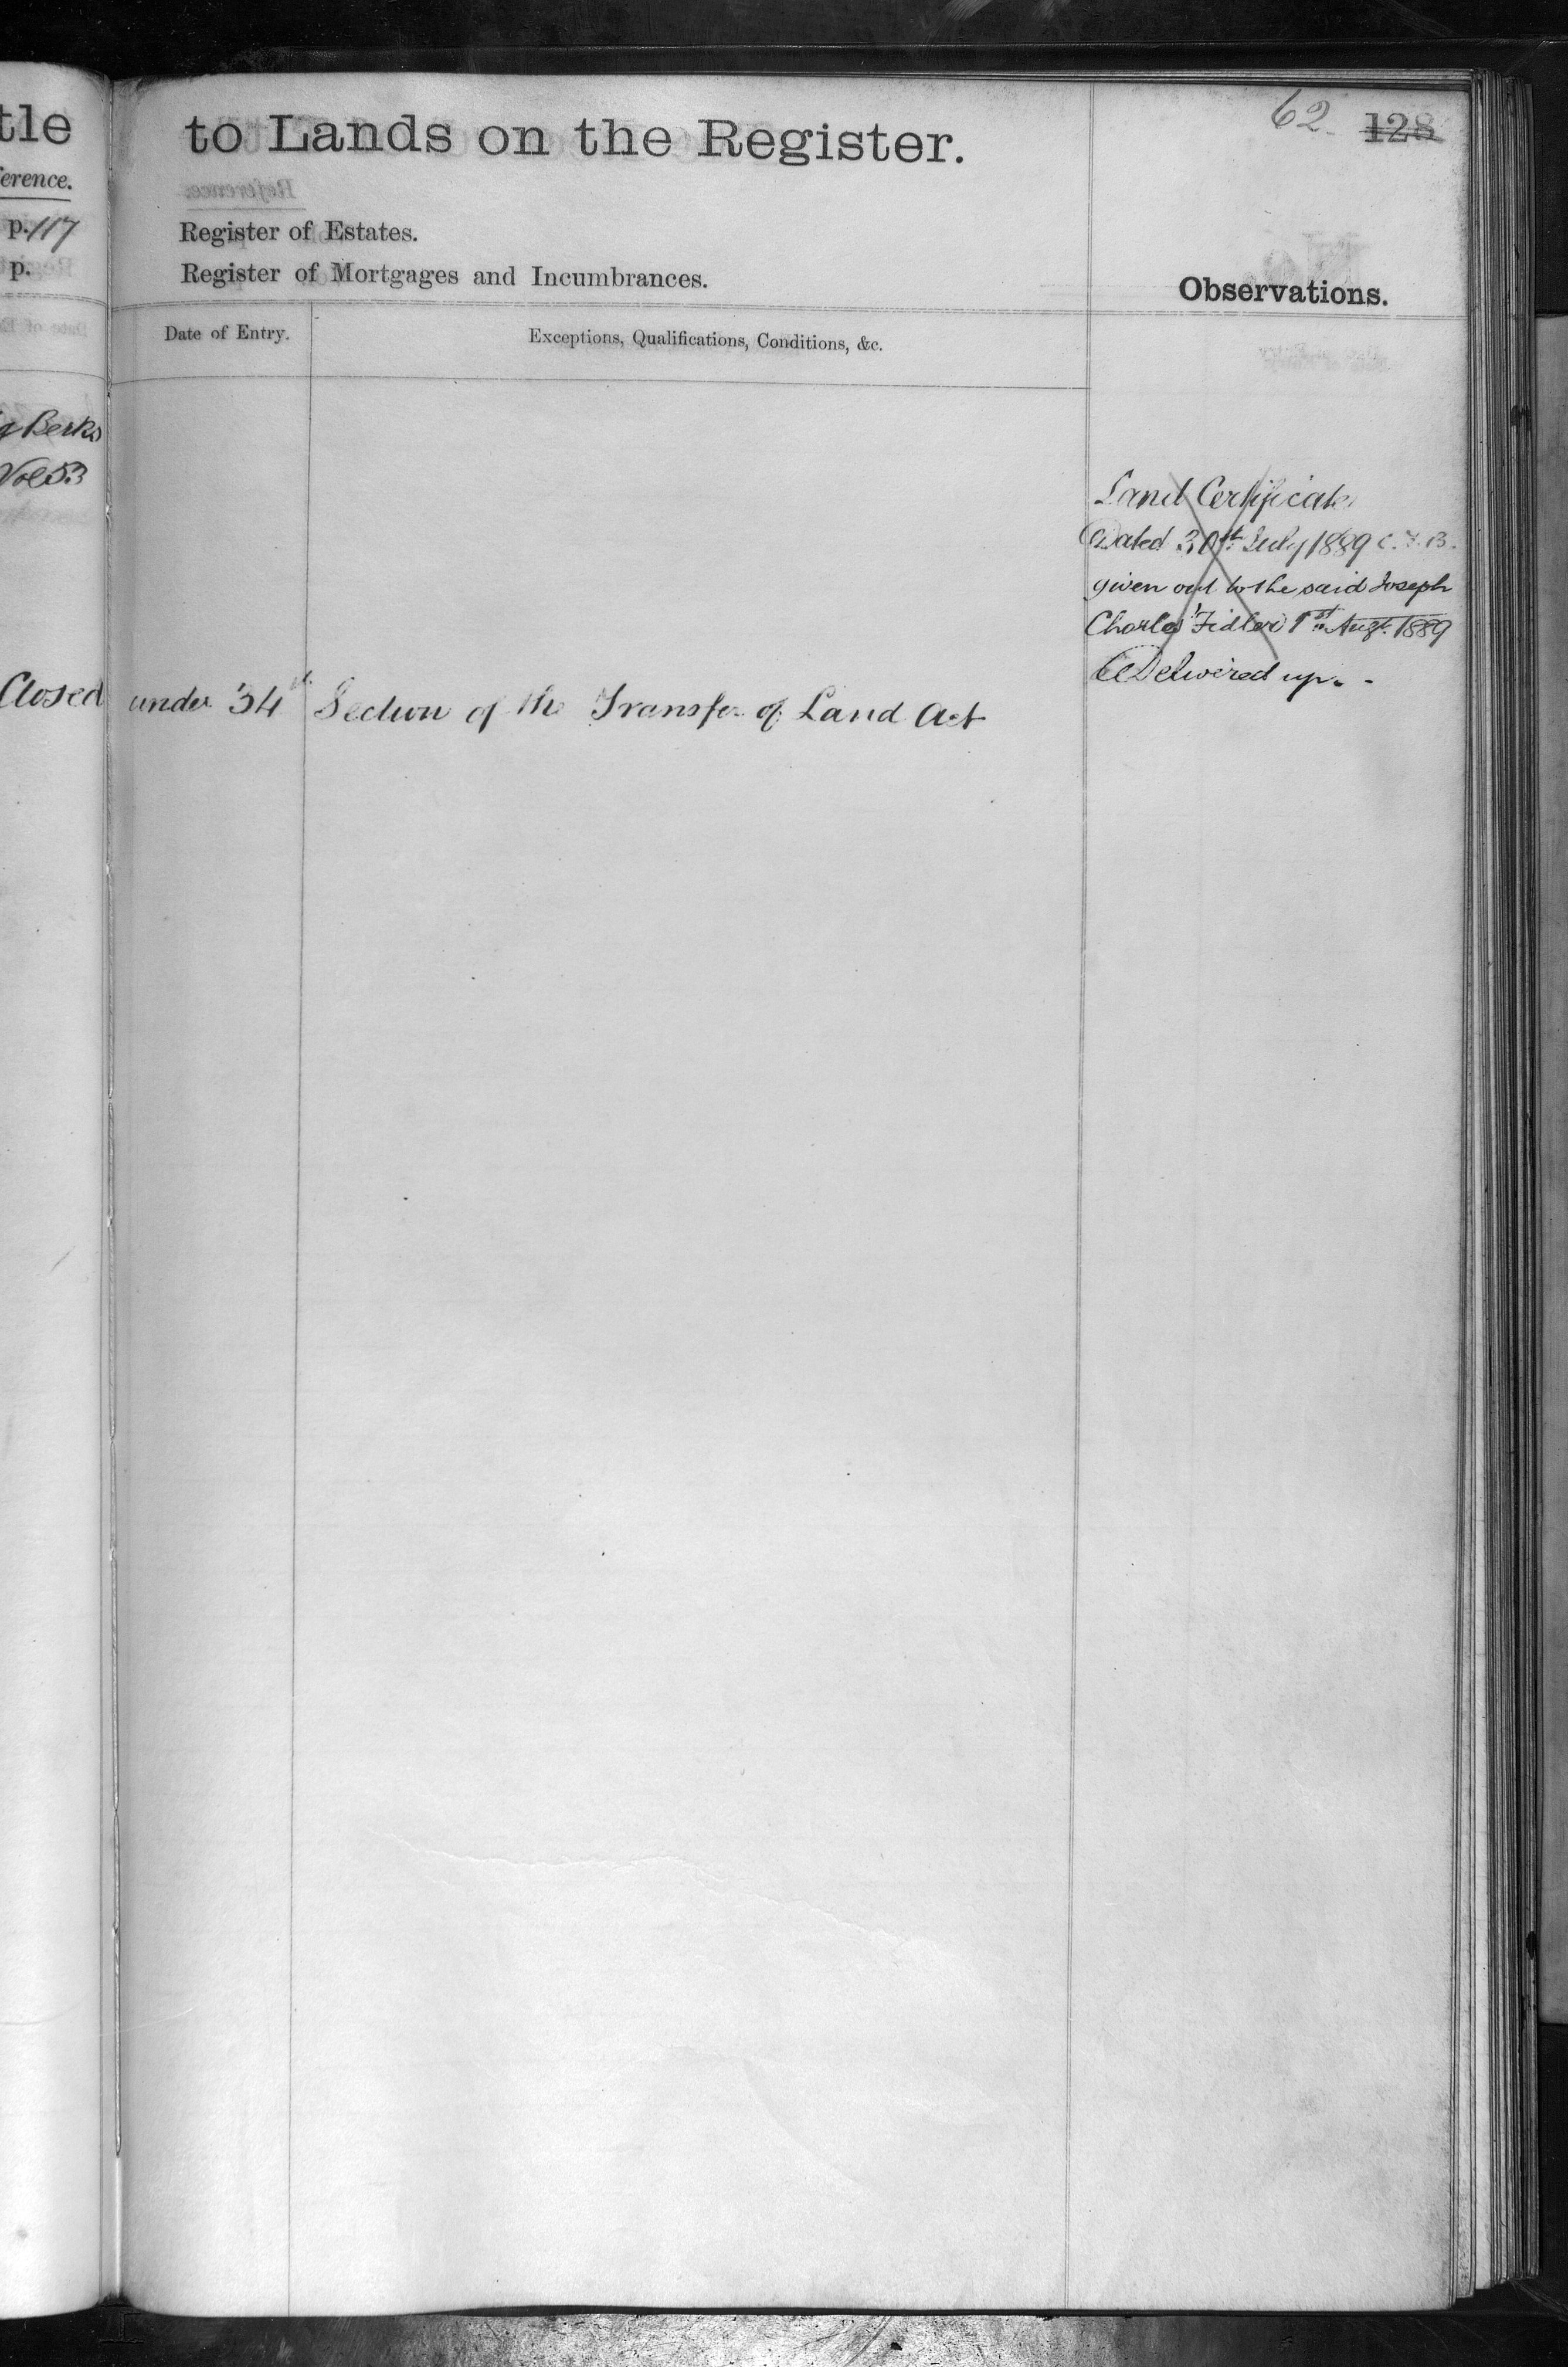 tle
erence.
p. 117
p.
Berks
Vol 53
to Lands on the Register.
62 128
Register of Estates.
Register of Mortgages and Incumbrances.
Observations.
Date of Entry.
Exceptions, Qualifications, Conditions, &c.
Land Certificate
Dated 30th July 1889
given out to the said Joseph
Charles Fidler 1st Augt. 1889
Delivered up.
Closed under 34th Section of the Transfer of Land Act